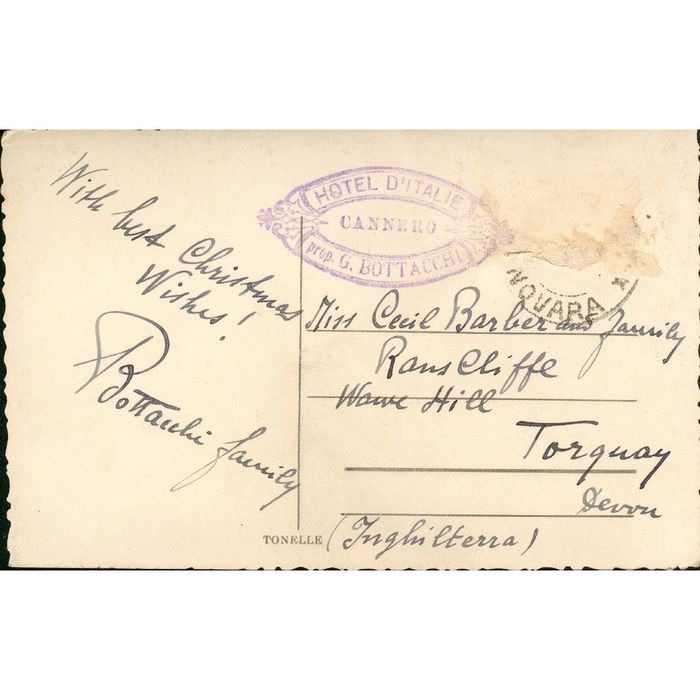 With best Christmas
Wishes!
Bottacchi family
HOTEL D'ITALIE
CANNERO
prop. G. BOTTACCHI
NOVARA
Miss Cecil Barber and family
Ranscliffe
Wawe Hill
Torquay
Devon
(Inghilterra)
TONELLE